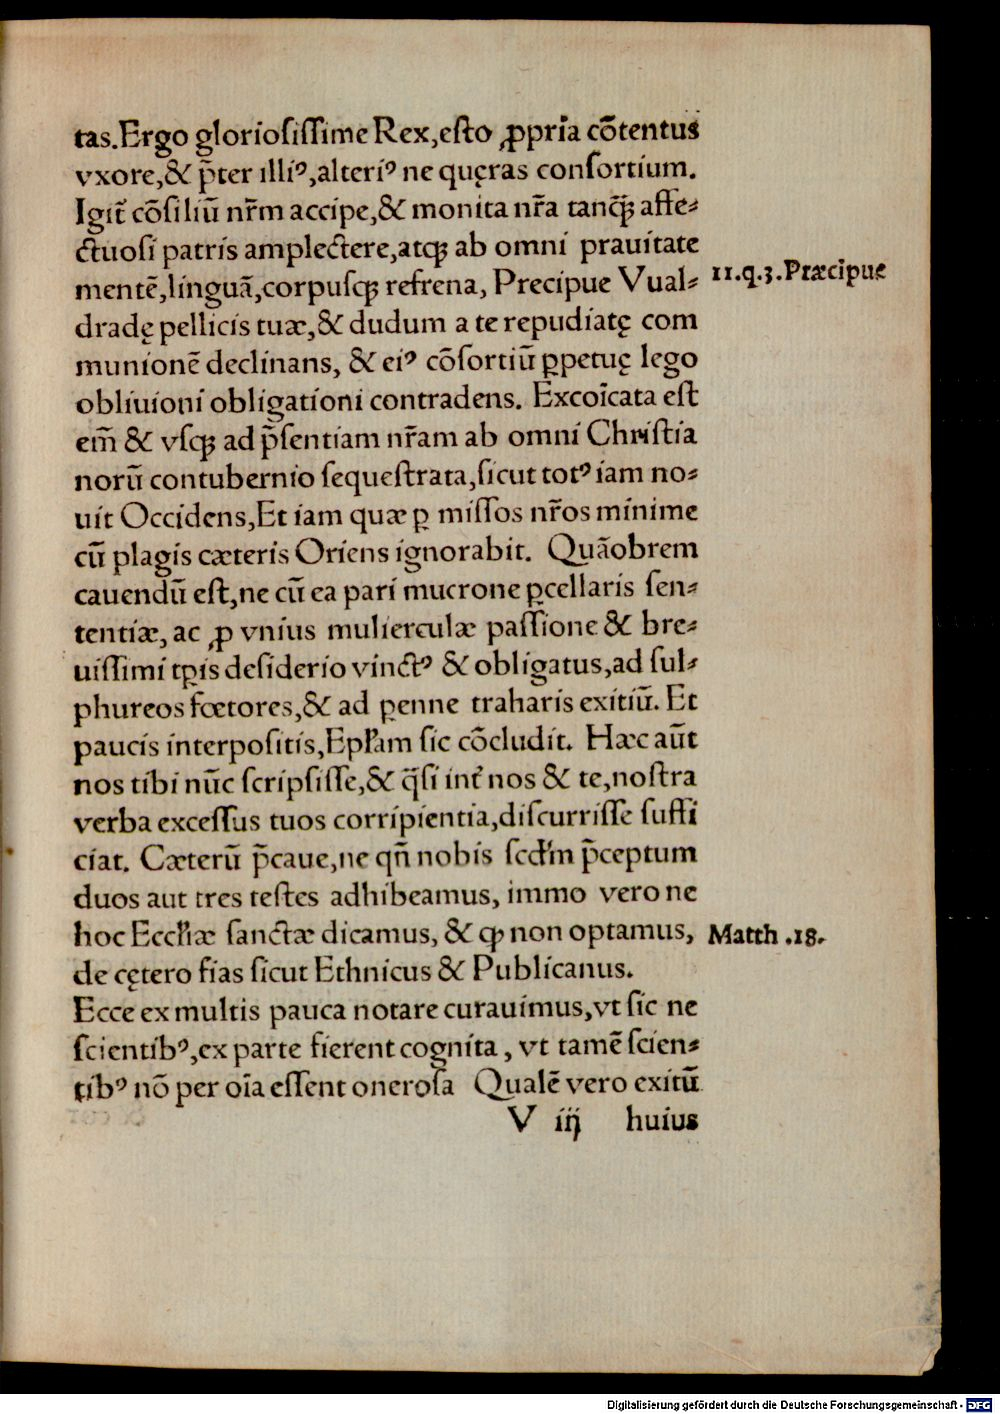 tas.Ergo gloriosiſſime Rex,eſto ꝓpria cõtentus
vxore,& p̃ter illiꝰ,alteriꝰ ne quęras conſortium.
Igit̃ cõſiliũ nr̃m accipe,& monita nr̃a tanꝙ̃ affe⸗
ctuoſi patris amplectere,atqꝫ ab omni prauitate
mentẽ,linguã,corpuſqꝫ refrena, Precipue Vual⸗
11.q.3.Præcipue
dradę pellicis tuæ,& dudum a te repudiatę com
munionẽ declinans, & eiꝰ cõſortiũ ꝑpetuę lego
obliuioni obligationi contradens. Excoĩcata eſt
em̃ & vſqꝫ ad p̃ſentiam nr̃am ab omni Chriſtia
norũ contubernio ſequeſtrata,ſicut totꝰ iam no⸗
uit Occidens,Et iam quæ ꝑ miſſos nr̃os minime
cũ plagis cæteris Oriens ignorabit. Quãobrem
cauendũ eſt,ne cũ ea pari mucrone ꝑcellaris ſen⸗
tentiæ, ac ꝓ vnius mulierculæ paſſione & bre⸗
uiſſimi tꝑis deſiderio vinctꝰ & obligatus,ad ſul⸗
phureos fœtores,& ad ꝑenne traharis exitiũ. Et
paucis interpoſitis,Epl̃am ſic cõcludit. Hæc aũt
nos tibi nũc ſcripſiſſe,& q̃ſi int̃ nos & te,noſtra
verba exceſſus tuos corripientia,diſcurriſſe ſuffi
ciat. Cæterũ p̃caue,ne qñ nobis ſcd̃m p̃ceptum
duos aut tres teſtes adhibeamus, immo vero ne
hoc Eccl̃iæ ſanctæ dicamus, & ꝙ non optamus,
Matth .18.
de cętero fias ſicut Ethnicus & Publicanus.
Ecce ex multis pauca notare curauimus,vt ſic ne
ſcientibꝰ,ex parte fierent cognita , vt tamẽ ſcien⸗
tibꝰ nõ per oĩa eſſent oneroſa Qualẽ vero exitũ
V iij huius
Digitalisierung gefördert durch die Deutsche Forschungsgemeinschaft - DFG